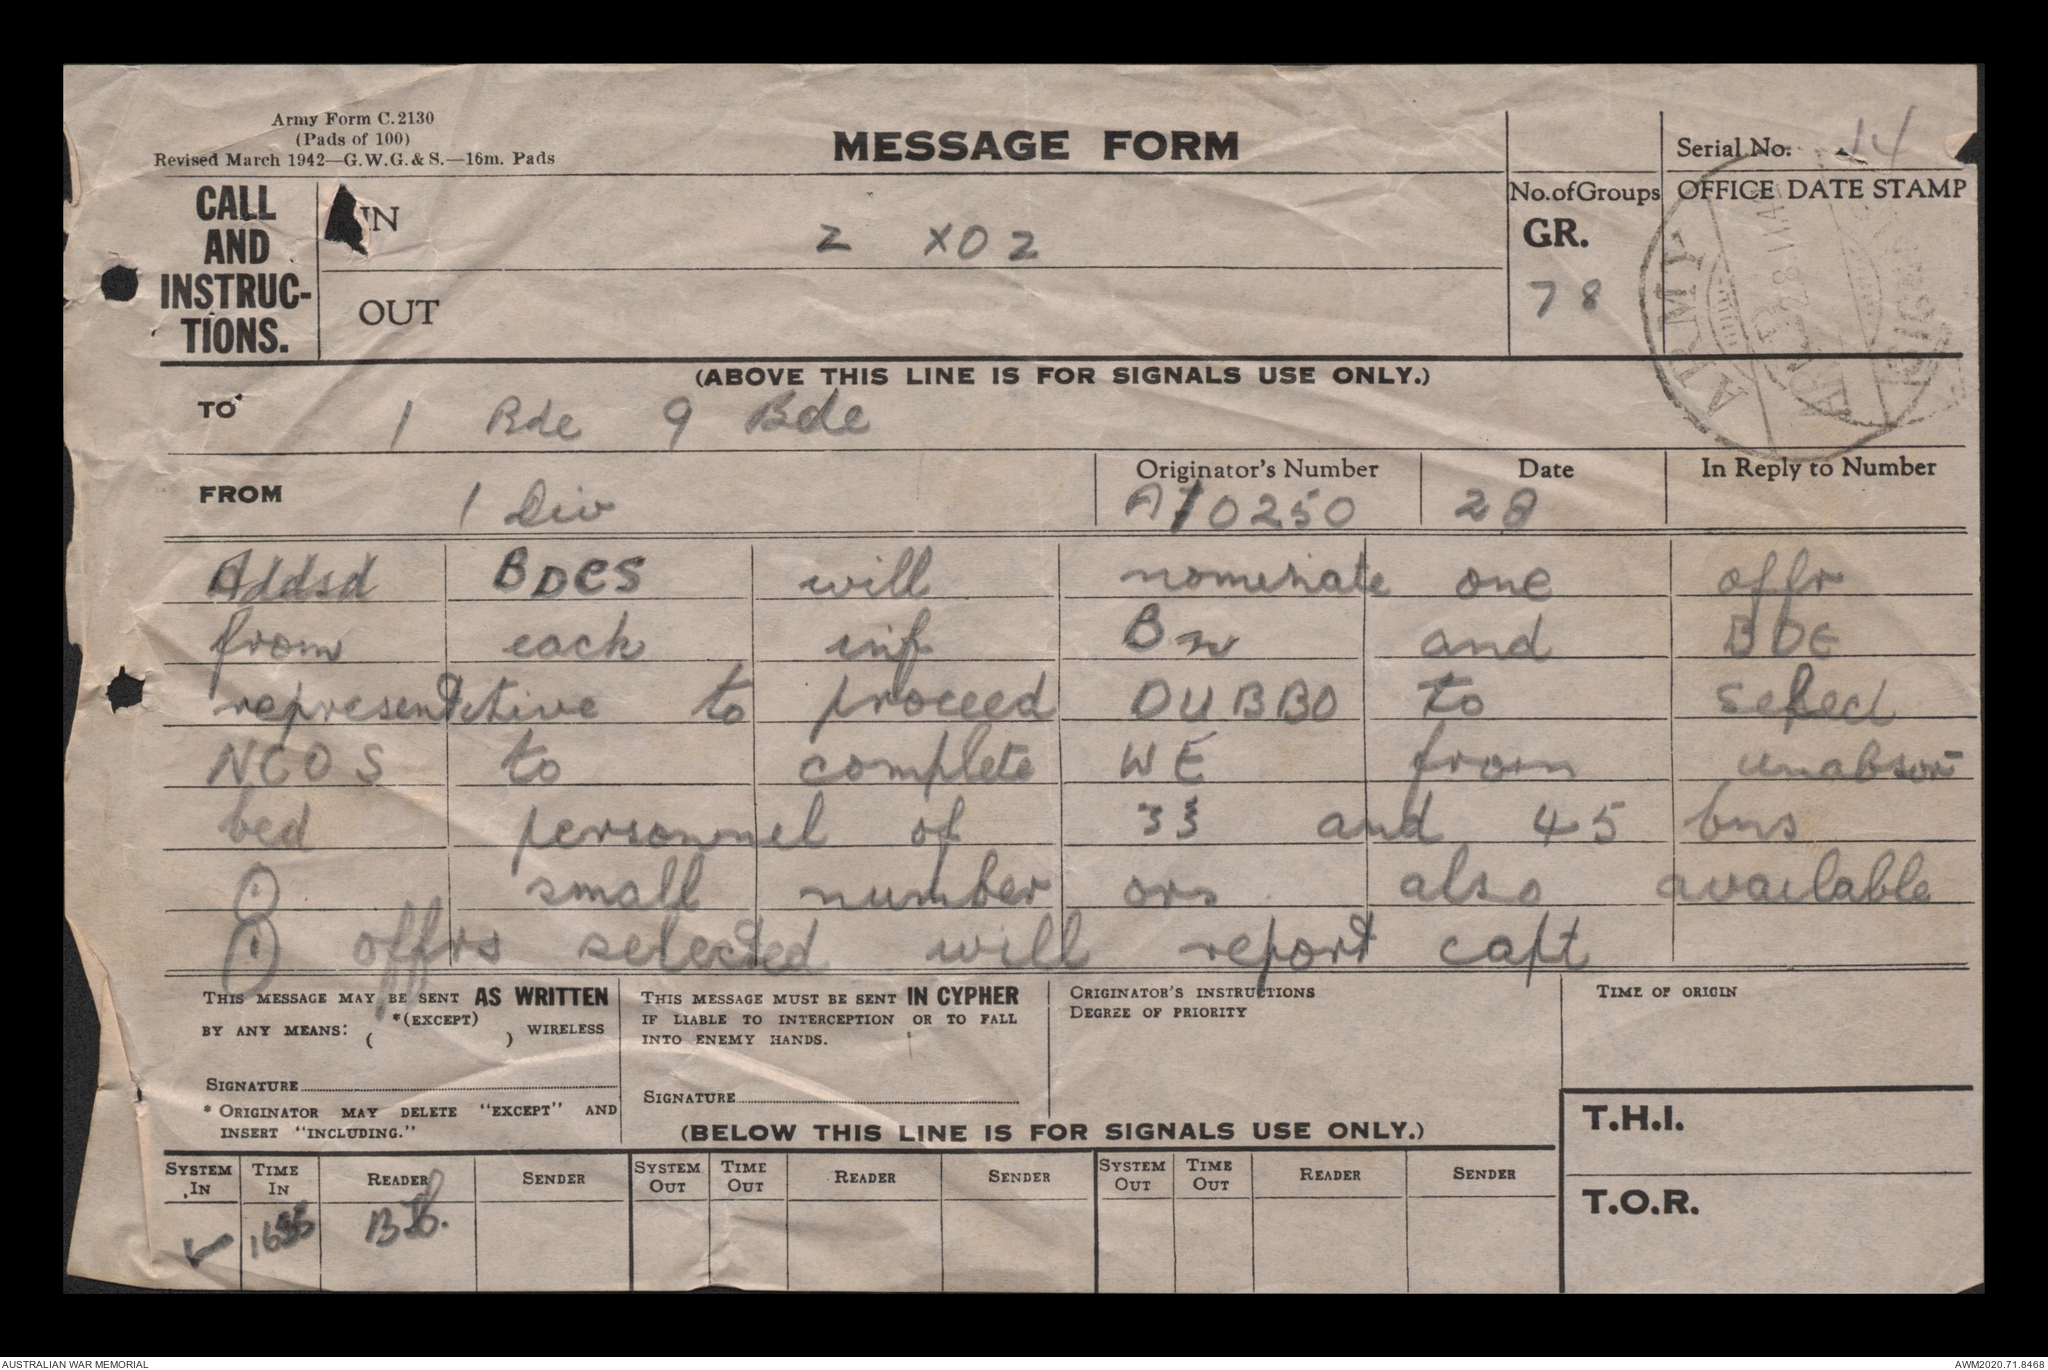 Army Form C.2130
(Pads of 100)
Revised March 1942—G.W.G. & S.—16m. Pads
MESSAGE FORM
Serial No. 14
CALL AND INSTRUC-TIONS.
IN
Z XO2
OUT
No. of Groups
GR.
78
OFFICE DATE STAMP
ARMY
(ABOVE THIS LINE IS FOR SIGNALS USE ONLY.)
TO 1 Bde 9 Bde
FROM 1 Div
Originator's Number
A10250
Date
28
In Reply to Number
Addsd BDES will nominate one offr
from each inf Bn and BDE
representative to proceed DUBBO to select
NCOS to complete WE from unabsor-
bed personnel of 33 and 45 bns
(.) small number ors also available
(.) offrs selected will report capt
THIS MESSAGE MAY BE SENT AS WRITTEN
BY ANY MEANS: *(EXCEPT) ( ) WIRELESS
SIGNATURE
* ORIGINATOR MAY DELETE "EXCEPT" AND
INSERT "INCLUDING."
THIS MESSAGE MUST BE SENT IN CYPHER
IF LIABLE TO INTERCEPTION OR TO FALL
INTO ENEMY HANDS.
SIGNATURE
ORIGINATOR'S INSTRUCTIONS
DEGREE OF PRIORITY
TIME OF ORIGIN
(BELOW THIS LINE IS FOR SIGNALS USE ONLY.)
T.H.I.
T.O.R.
SYSTEM IN TIME IN READER SENDER SYSTEM OUT TIME OUT READER SENDER SYSTEM OUT TIME OUT READER SENDER
1655
AUSTRALIAN WAR MEMORIAL
AWM2020.71.8468